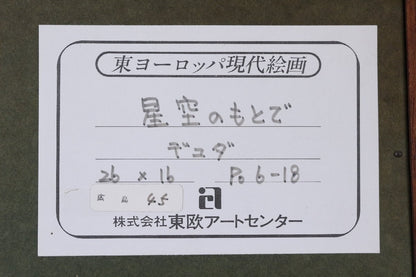 東ヨーロッパ現代絵画
星空のもとで
デュダ
26 × 16 Po 6-18
広 島 45
株式会社 東欧アートセンター